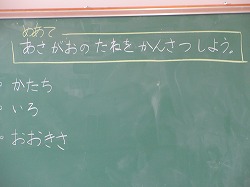 めあて
あさがおのたねをかんさつしよう。
・かたち
・いろ
・おおきさ